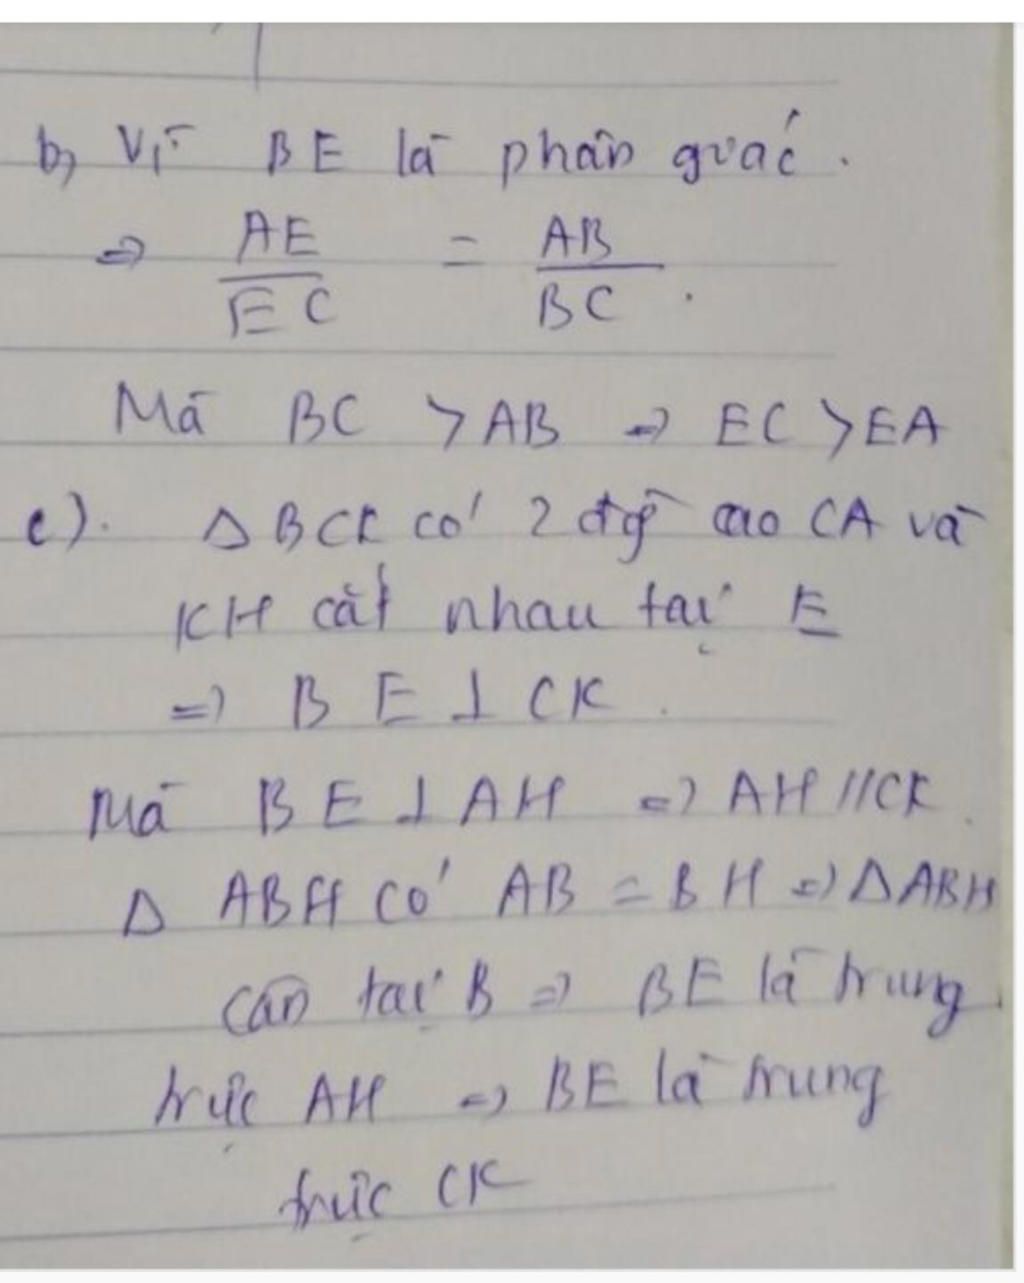 b, Vì BE là phân giác.
⇒ AE/EC = AB/BC.
Mà BC > AB ⇒ EC > EA
c). Δ BCK có 2 đg̀ cao CA và
KH cắt nhau tại E
⇒ BE ⊥ CK.
Mà BE ⊥ AH ⇒ AH // CK.
Δ ABH có AB = BH ⇒ Δ ABH
cân tại B ⇒ BE là trung
trực AH ⇒ BE là trung
trực CK